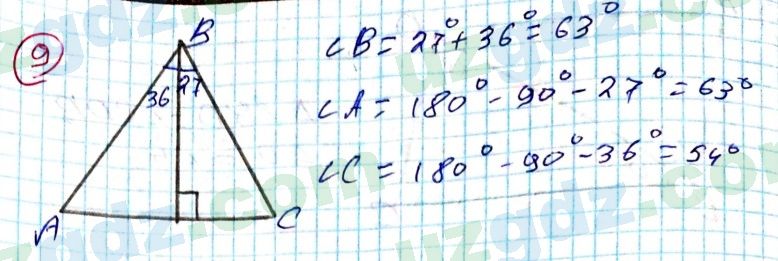 9
B
36 27
A
C
∠B = 27° + 36° = 63°
∠A = 180° - 90° - 27° = 63°
∠C = 180° - 90° - 36° = 54°
uzgdz.com